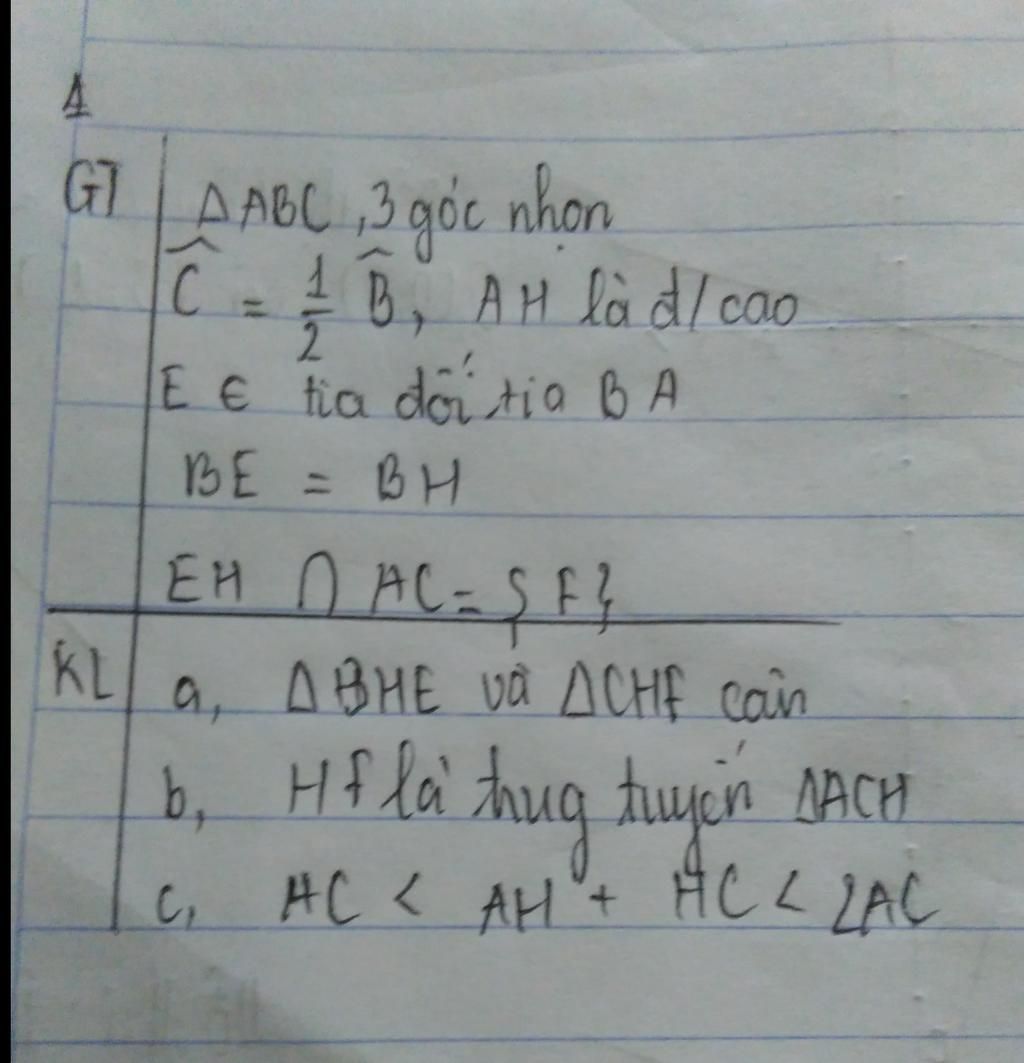 1
GT ΔABC, 3 góc nhọn
Ĉ = 1/2 B̂, AH là đ/cao
E ∈ tia đối tia BA
BE = BH
EH ∩ AC = {F}
KL a, ΔBHE và ΔCHF cân
b, HF là trung tuyến ΔACH
c, AC < AH + HC < 2AC